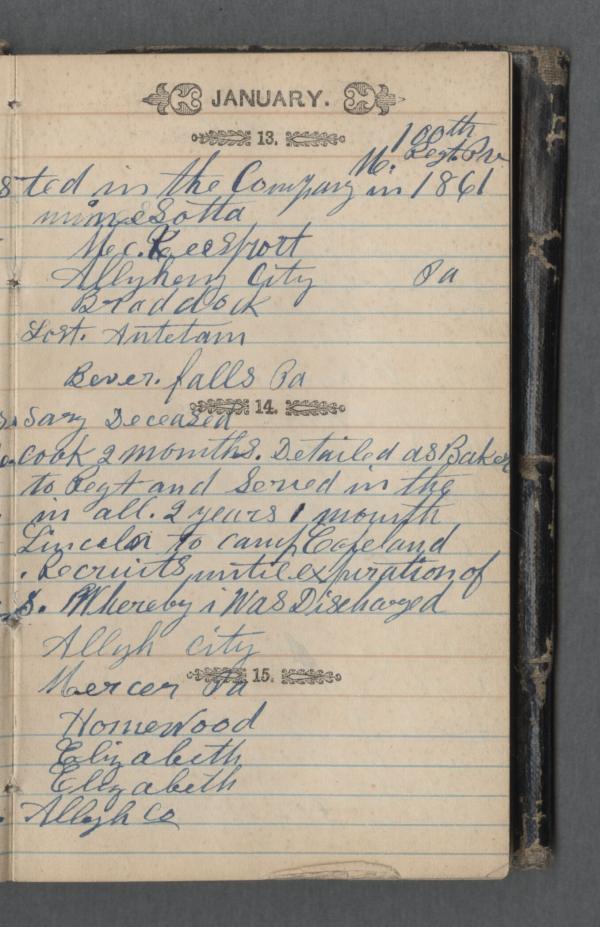 JANUARY.
13.
100th
M. Regt. P.V.
sted in the Company in 1861
minnesotta
Mc.Keesport
Allegheny City Pa
Braddock
Lost. Antetam
Bever. falls Pa
14.
Sary Deceased
cook 2 months. Detailed as Baker
to Regt and Served in the
in all. 2 years 1 month
Lincoln to camp Copeland
. Recruits until expiration of
s. Whereby i Was Discharged
Allgh City
15.
Mercer Pa
Homewood
Elizabeth
Elizabeth
Allgh Co